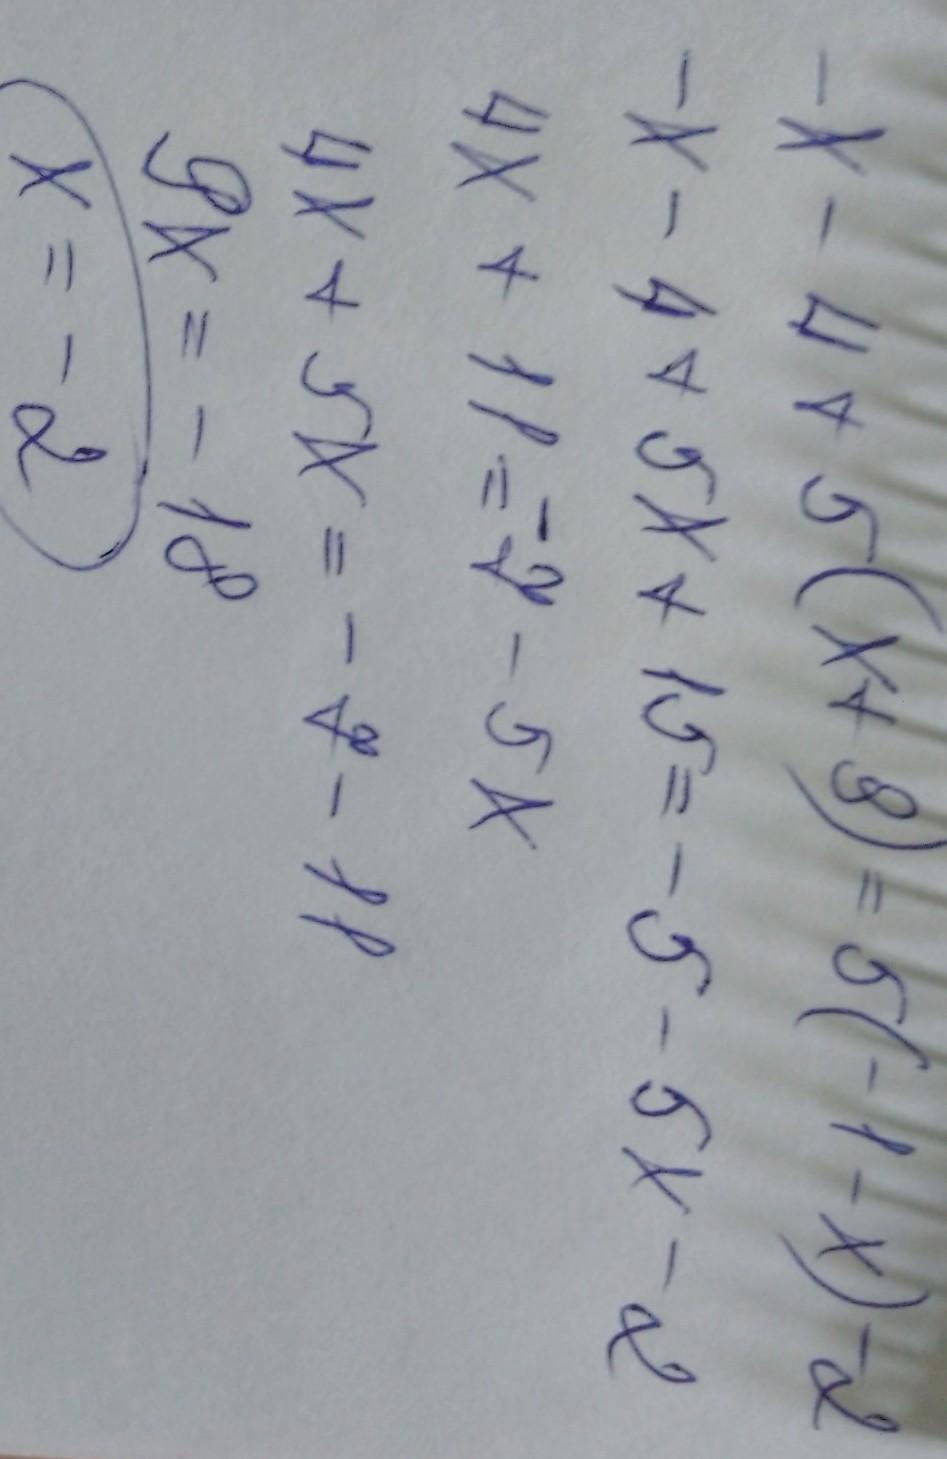 -x-4+5(x+3)=5(-1-x)-2
-x-4+5x+15=-5-5x-2
4x+11=-7-5x
4x+5x=-7-11
9x=-18
x=-2